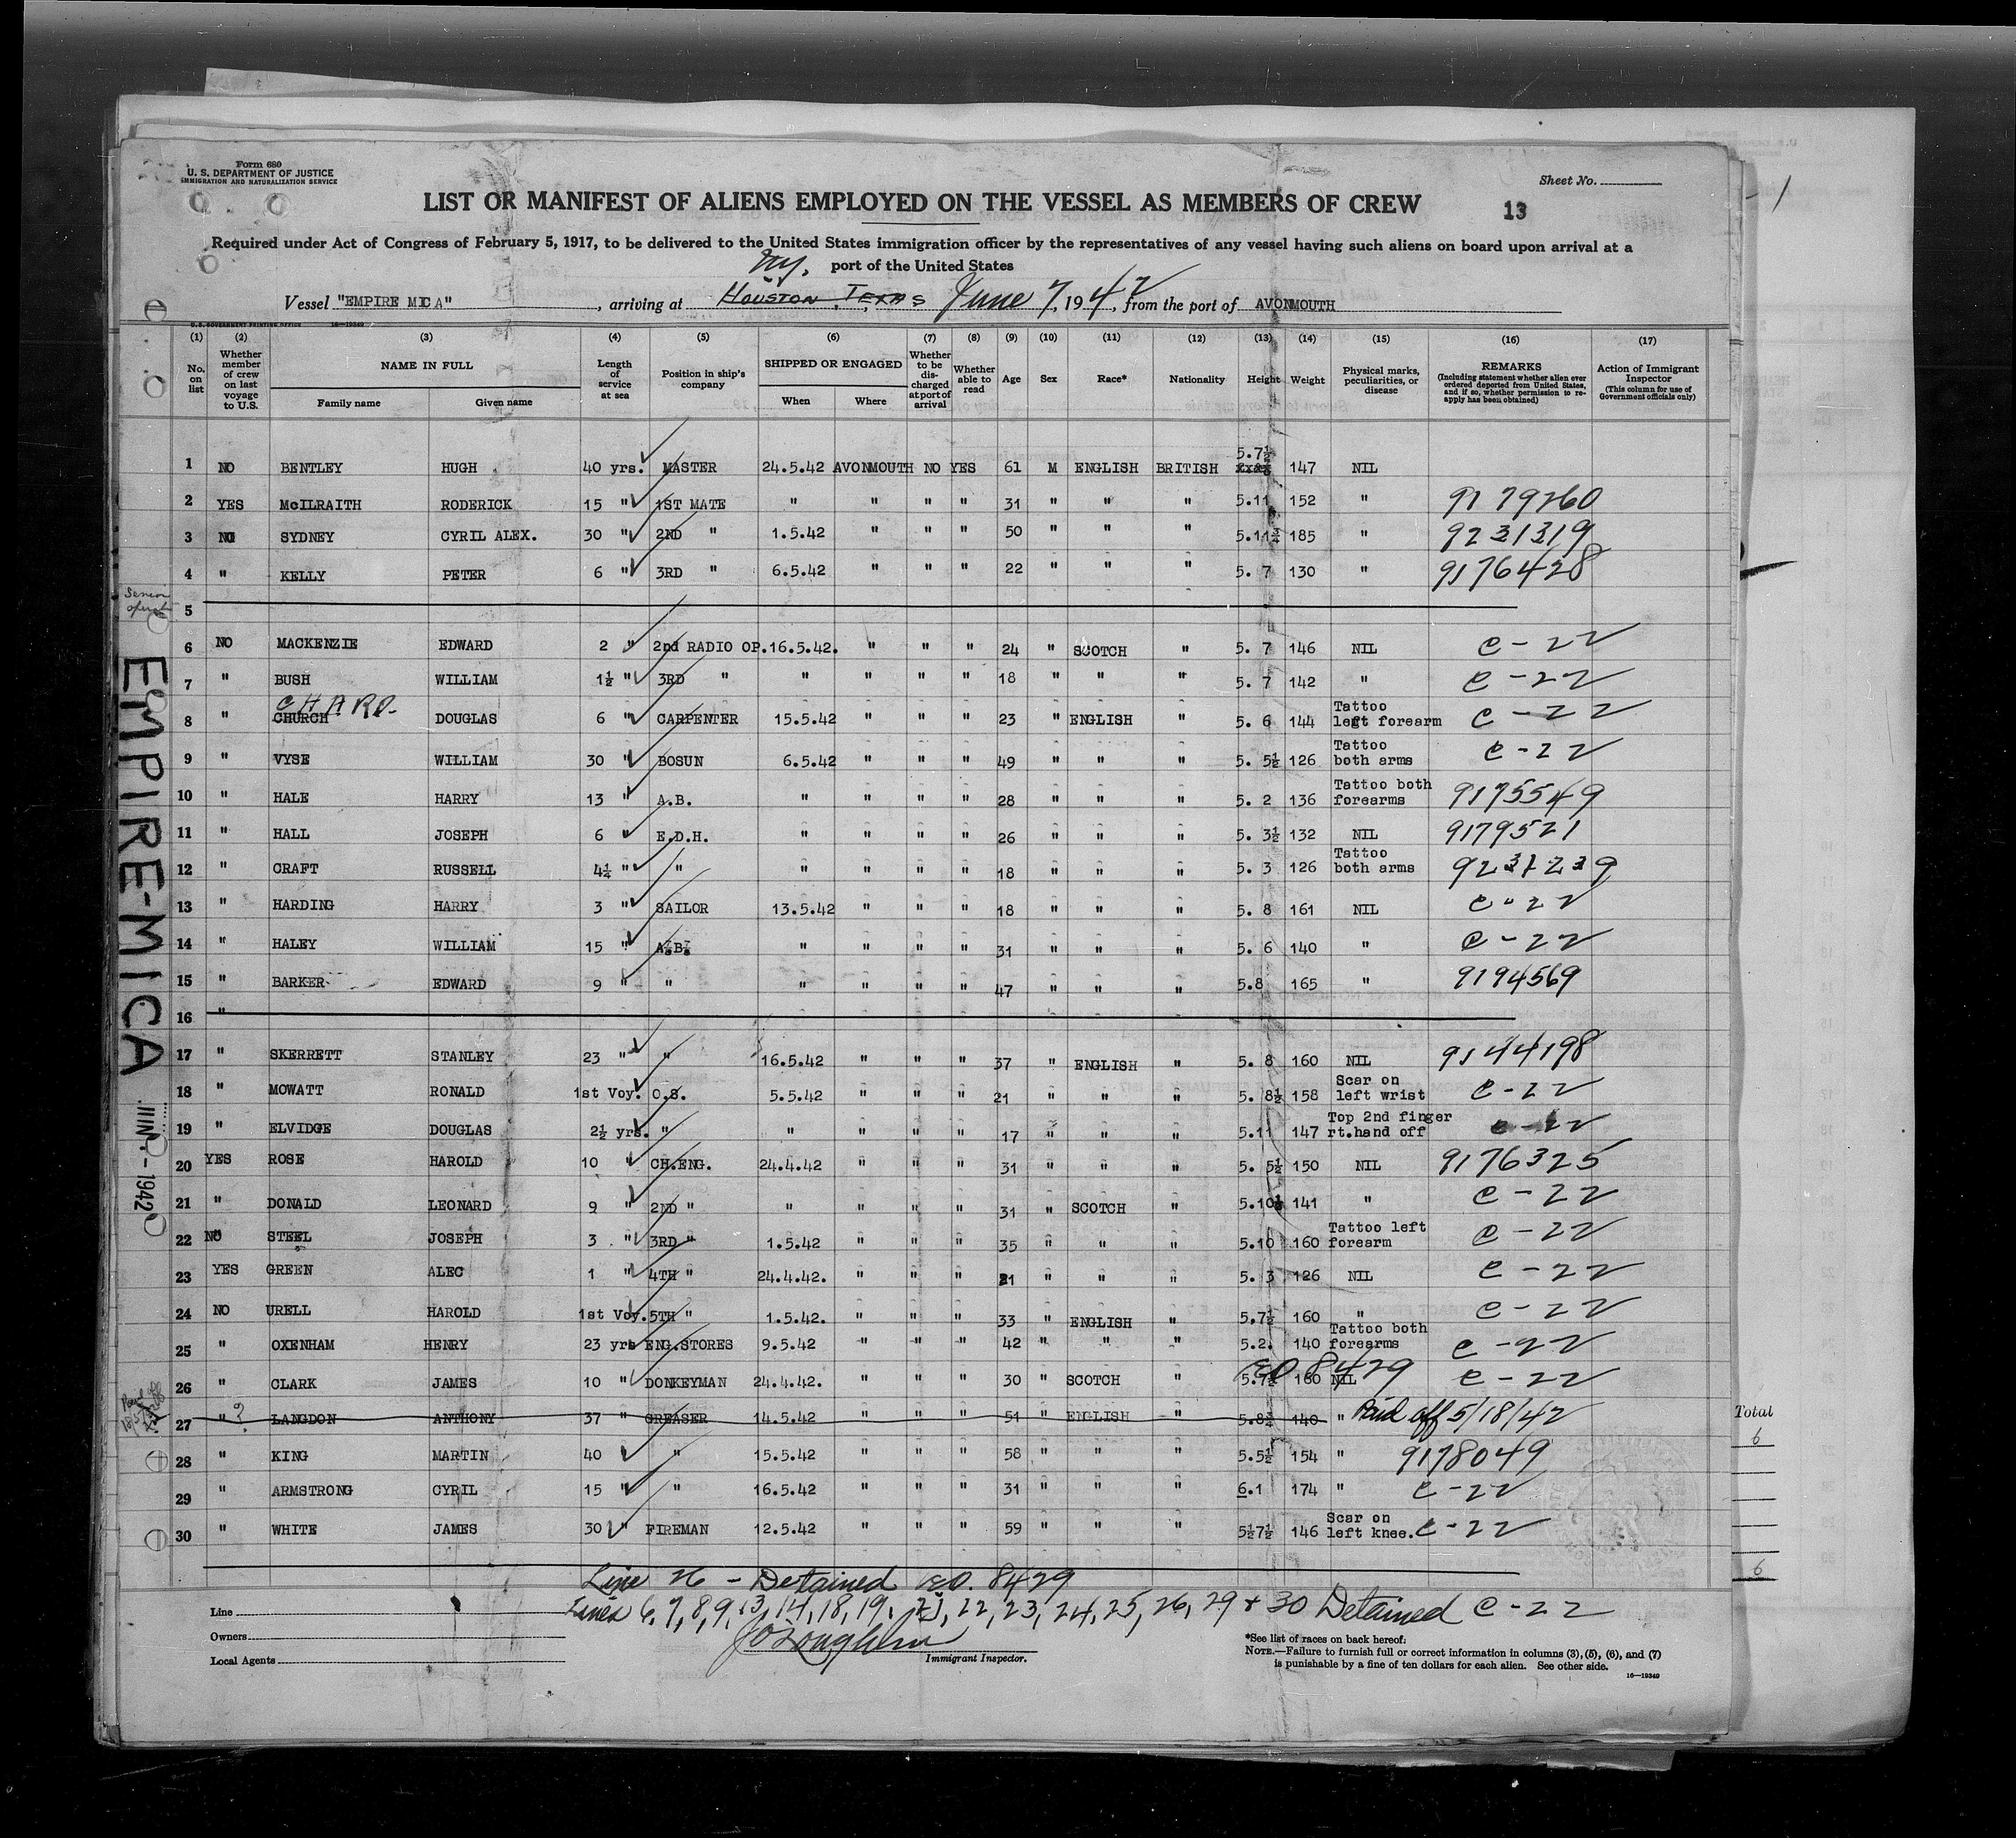 Form 680
U. S. DEPARTMENT OF JUSTICE
IMMIGRATION AND NATURALIZATION SERVICE
Sheet No.
LIST OR MANIFEST OF ALIENS EMPLOYED ON THE VESSEL AS MEMBERS OF CREW
13
Required under Act of Congress of February 5, 1917, to be delivered to the United States immigration officer by the representatives of any vessel having such aliens on board upon arrival at a
port of the United States
N.Y.
Vessel "EMPIRE MICA", arriving at HOUSTON, TEXAS June 7, 1942, from the port of AVONMOUTH
U.S. GOVERNMENT PRINTING OFFICE 16—19349
(1) (2) (3) (4) (5) (6) (7) (8) (9) (10) (11) (12) (13) (14) (15) (16) (17)
No. on list Whether member of crew on last voyage to U.S. NAME IN FULL Family name Given name Length of service at sea Position in ship's company SHIPPED OR ENGAGED When Where Whether to be discharged at port of arrival Whether able to read Age Sex Race* Nationality Height Weight Physical marks, peculiarities, or disease REMARKS (Including statement whether alien ever ordered deported from United States, and if so, whether permission to reapply has been obtained) Action of Immigrant Inspector (This column for use of Government officials only)
1 NO BENTLEY HUGH 40 yrs. MASTER 24.5.42 AVONMOUTH NO YES 61 M ENGLISH BRITISH 5.7½ 147 NIL
2 YES McILRAITH RODERICK 15 " 1ST MATE " " " " 31 " " " 5.11 152 " 9179260
3 NO SYDNEY CYRIL ALEX. 30 " 2ND " 1.5.42 " " " 50 " " " 5.11¾ 185 " 9231319
4 " KELLY PETER 6 " 3RD " 6.5.42 " " " 22 " " " 5. 7 130 " 9176428
Senior
5
6 NO MACKENZIE EDWARD 2 " 2nd RADIO OP. 16.5.42. " " " 24 " SCOTCH " 5. 7 146 NIL C-22
7 " BUSH WILLIAM 1½ " 3RD " " " " " 18 " " " 5. 7 142 " C-22
CHARD
8 " CHURCH DOUGLAS 6 " CARPENTER 15.5.42 " " " 23 " ENGLISH " 5. 6 144 Tattoo left forearm C-22
9 " VYSE WILLIAM 30 " BOSUN 6.5.42 " " " 49 " " " 5. 5½ 126 Tattoo both arms C-22
10 " HALE HARRY 13 " A.B. " " " " 28 " " " 5. 2 136 Tattoo both forearms 9175549
11 " HALL JOSEPH 6 " E.D.H. " " " " 26 " " " 5. 3½ 132 NIL 9179521
12 " CRAFT RUSSELL 4¼ " " " " " " 18 " " " 5. 3 126 Tattoo both arms 9231239
13 " HARDING HARRY 3 " SAILOR 13.5.42 " " " 18 " " " 5. 8 161 NIL C-22
14 " HALEY WILLIAM 15 " A.B. " " " " 31 " " " 5. 6 140 " C-22
15 " BARKER EDWARD 9 " " " " " " 47 " " " 5.8 165 " 9194569
16 "
17 " SKERRETT STANLEY 23 " " 16.5.42 " " " 37 " ENGLISH " 5. 8 160 NIL 9144198
18 " MOWATT RONALD 1st Voy. O.S. 5.5.42 " " " 21 " " " 5. 8½ 158 Scar on left wrist C-22
19 " ELVIDGE DOUGLAS 2½ yrs. " " " " " 17 " " " 5.11 147 Top 2nd finger rt.hand off C-22
20 YES ROSE HAROLD 10 " CH.ENG. 24.4.42 " " " 31 " " " 5. 5½ 150 NIL 9176325
21 " DONALD LEONARD 9 " 2ND " " " " " 31 " SCOTCH " 5.10½ 141 " C-22
22 NO STEEL JOSEPH 3 " 3RD " 1.5.42 " " " 35 " " " 5.10 160 Tattoo left forearm C-22
23 YES GREEN ALEC 1 " 4TH " 24.4.42. " " " 21 " " " 5. 3 126 NIL C-22
24 NO URELL HAROLD 1st Voy. 5TH " 1.5.42. " " " 33 " ENGLISH " 5.7½ 160 " C-22
25 " OXENHAM HENRY 23 yrs ENG.STORES 9.5.42 " " " 42 " " " 5.2. 140 Tattoo both forearms C-22
EO 8429
26 " CLARK JAMES 10 " DONKEYMAN 24.4.42. " " " 30 " SCOTCH " 5.7½ 160 NIL C-22
27 " ? LANGDON ANTHONY 37 " GREASER 14.5.42 " " " 51 " ENGLISH " 5.8¾ 140 " Paid off 5/18/42
28 " KING MARTIN 40 " 15.5.42 " " " 58 " " " 5.5½ 154 " 9178049
29 " ARMSTRONG CYRIL 15 " " 16.5.42 " " " 31 " " " 6.1 174 " C-22
30 " WHITE JAMES 30 " FIREMAN 12.5.42 " " " 59 " " " 5½7½ 146 Scar on left knee. C-22
EMPIRE-MICA
JUN - 1942
Total
6
6
Line 26 - Detained EO. 8429
Lines 6, 7, 8, 9, 13, 14, 18, 19, 21, 22, 23, 24, 25, 26, 29 & 30 Detained C-22
Line
Owners
Local Agents
Immigrant Inspector.
*See list of races on back hereof.
NOTE.—Failure to furnish full or correct information in columns (3), (5), (6), and (7)
is punishable by a fine of ten dollars for each alien. See other side.
16—19349